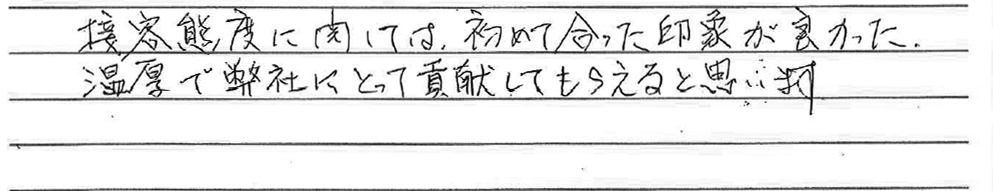 接客態度に関しては、初めて会った印象が良かった。
温厚で弊社にとって貢献してもらえると思い